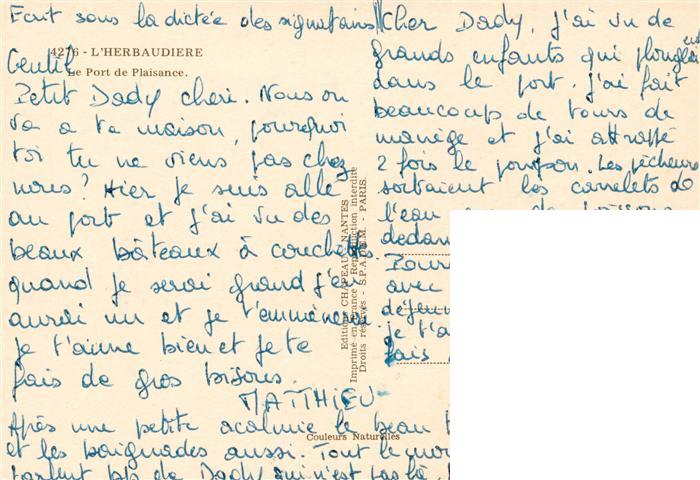 Ecrit sous la dictée des signataires
4276 - L'HERBAUDIERE
Le Port de Plaisance.
Gentil
Petit Dady cheri. Nous on
va a ta maison, pourquoi
toi tu ne viens pas chez
nous? Hier je suis allé
au port et j'ai vu des
beaux bâteaux à couchettes
quand je serai grand j'en
aurai un et je t'emmènerai
je t'aime bien et je te
fais de gros bisous.
MATTHIEU
Après une petite acalmie le beau
et les baignades aussi. Tout le
parlent de Dady qui n'est pas là,
Editions CHAPEAU - NANTES
Imprimé en France - Reproduction interdite
Droits réservés - S.P.A.D.E.M. - PARIS.
Couleurs Naturelles
Cher Dady, j'ai vu de
grands enfants qui plongeaient
dans le port. j'ai fait
beaucoup de tours de
manège et j'ai attrappé
2 fois le pompon. Les pêcheurs
sortaient les carrelets de
l'eau
dedans
avec
je t'a
fais